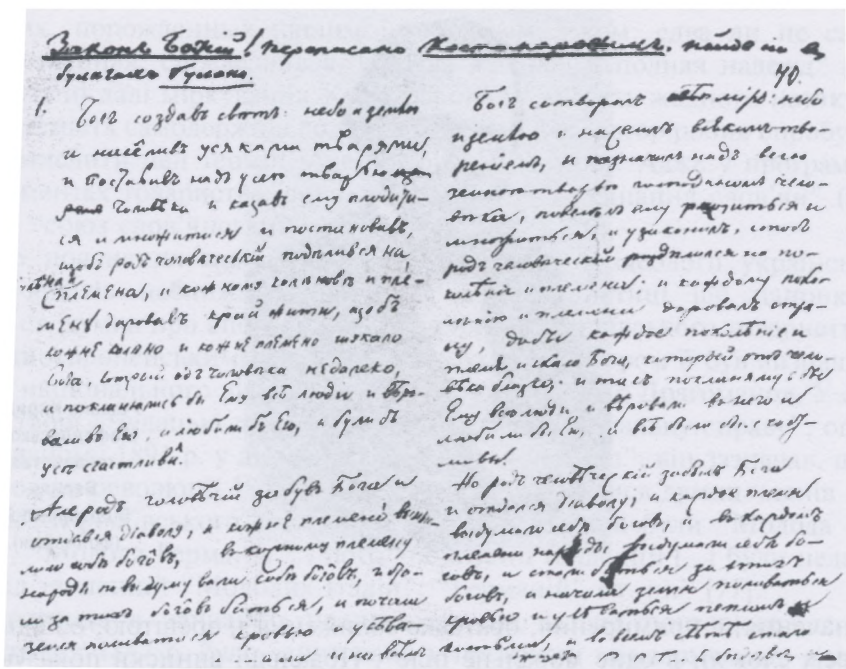 Законъ Божій! переписано Костомаровымъ. найдено въ
бумагахъ Гулака.
40.
1. Богъ создавъ свѣтъ: небо и землю
и населивъ усякими тварями,
и поставивъ надъ усею тварью
человѣка и казавъ ему плодити-
ся и множитися и постановивъ,
щобъ родъ человѣческій подѣлився на
племена, и кожному колѣнови и пле-
мену даровавъ край жити, щобъ
кожне колѣно и кожне племено шукало
Бога, которій одъ человѣка недалеко,
и поклонялись бы Ему всѣ люди и вѣро-
вали въ Ею, и любили бъ Ею, и були бъ
усѣ счастливи.
Але родъ человѣчій забувъ Бога и
отдався діаволу, а кожне племено
мило собѣ богôвъ, въ кожному племену
народы повидумовали собѣ богôвъ, и
за тихъ богôвъ биться, и почала
земля поливатися кровью и усѣва-
Богъ сотворилъ міръ: небо
и землю и населилъ всякимъ тво-
реніемъ, и назначилъ надъ всею
тварью господиномъ чело-
вѣка, повелѣлъ ему родиться и
множиться, и узаконилъ, чтобъ
родъ человѣческій раздѣлился на по-
колѣнія и племена; и каждому поко-
лѣнію и племени даровалъ стра-
ну, дабы каждое поколѣніе и
племя искало Бога, который отъ чело-
вѣка близко: и такъ поклонялись бы
Ему всѣ люди и вѣровали въ него и
любили бъ Ею, и всѣ были бы счаст-
ливы.
Но родъ человѣческій забылъ Бога
и отдался діаволу, и каждое племя
выдумало себѣ боговъ, и въ каждомъ
племени народы выдумали себѣ бо-
говъ, и стали биться за этихъ
боговъ, и начала земля поливаться
кровью и усѣваться пепломъ и
костьми, и во всемъ свѣтѣ стало